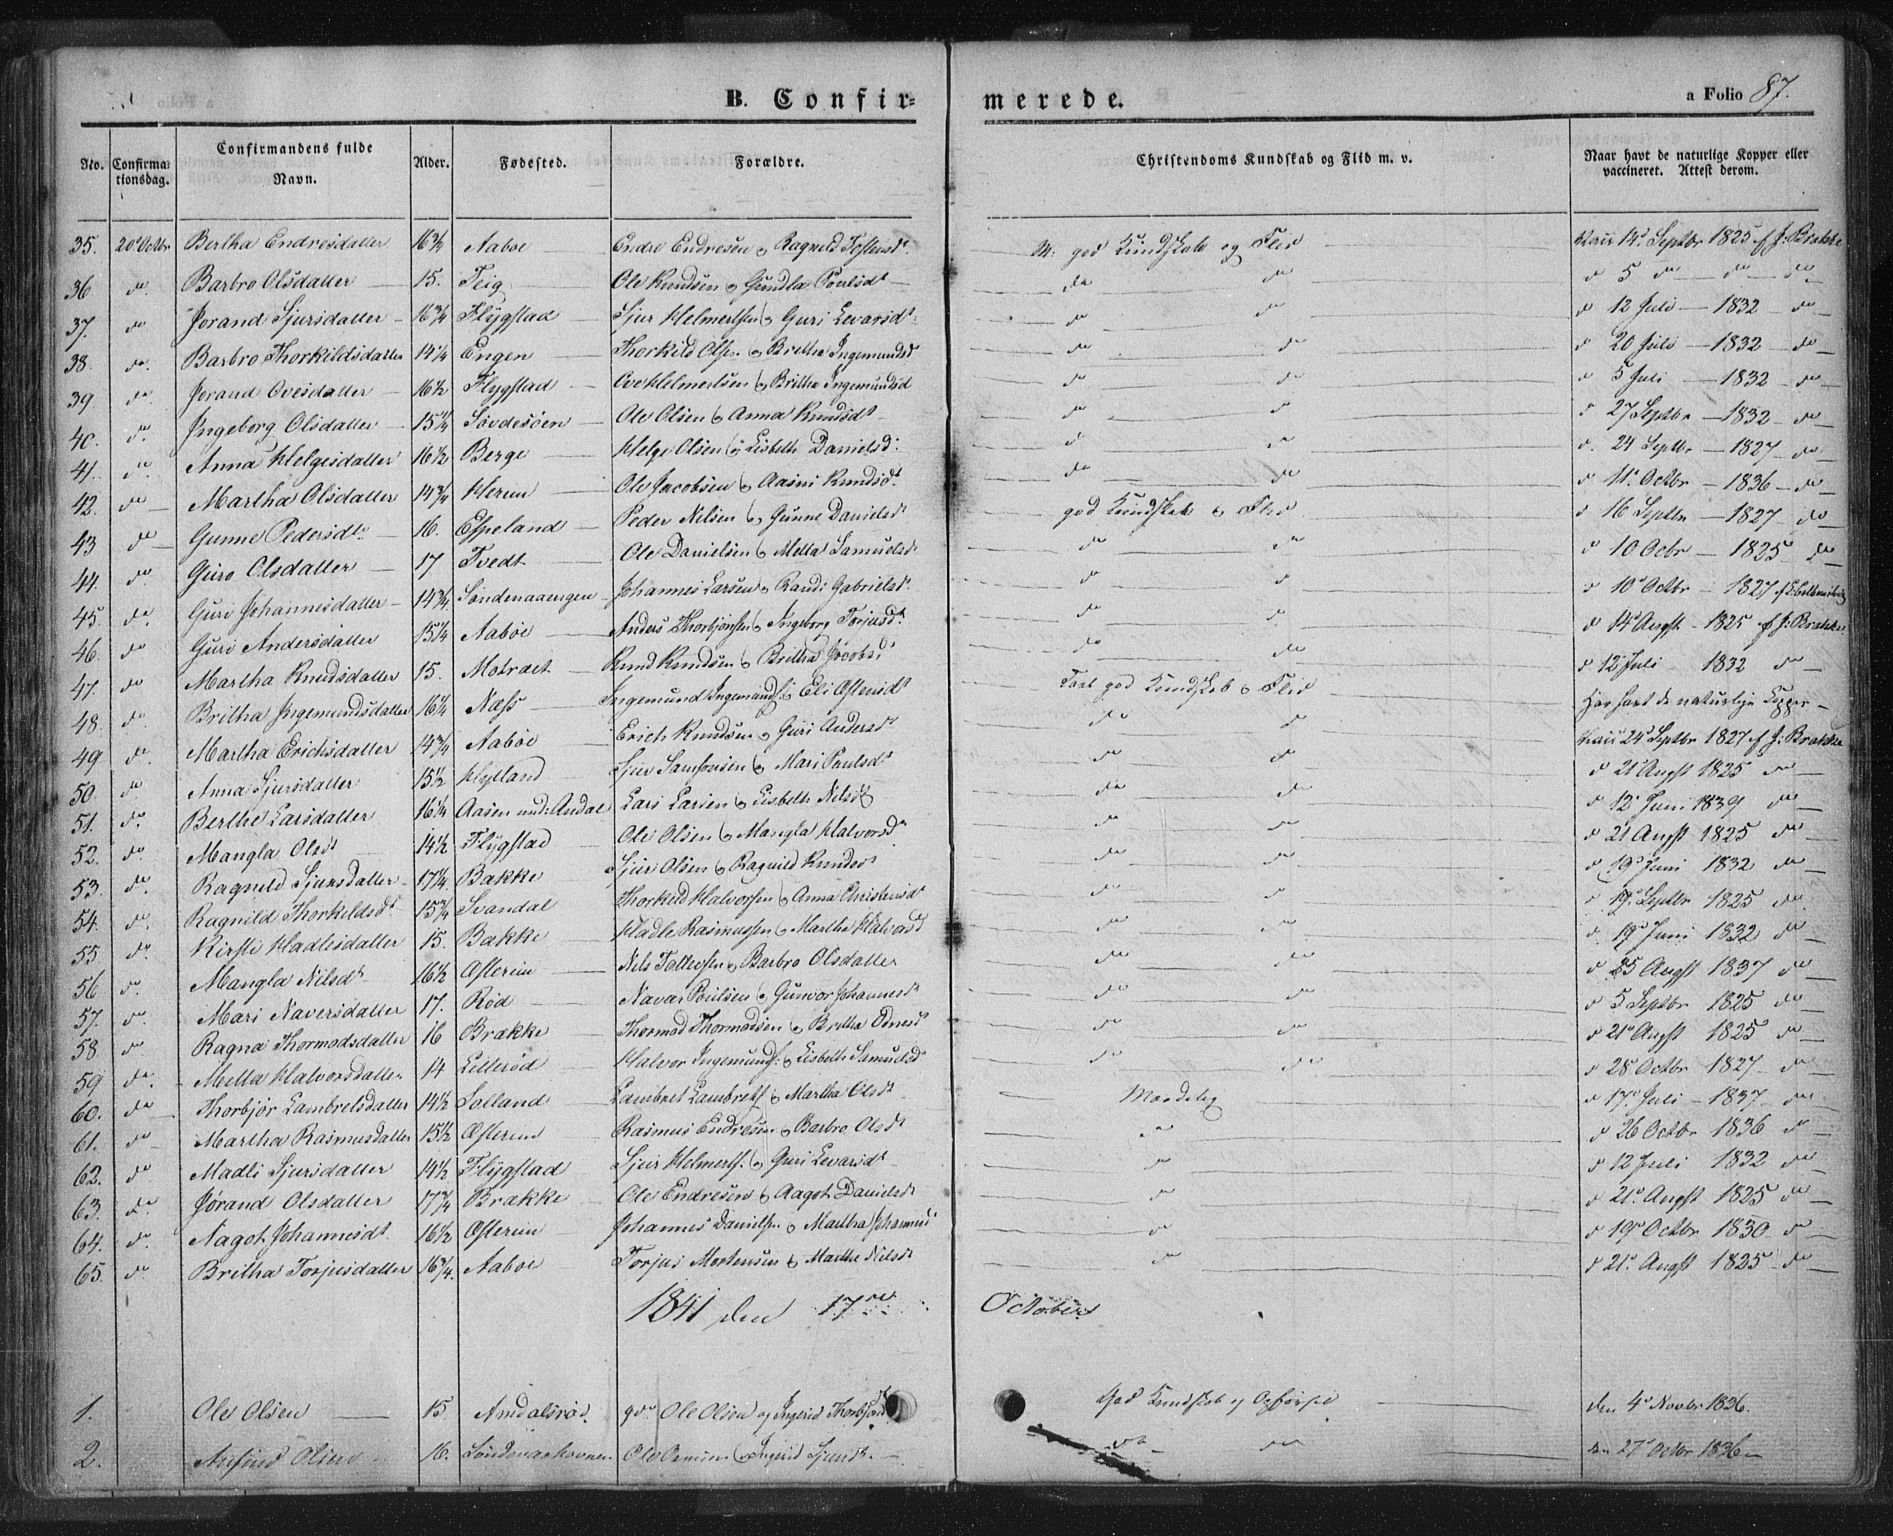 B. Confirmerede. a Folio 87.
No. Confirmationsdag. Confirmandens fulde Navn. Alder. Fødested. Forældre. Christendoms Kundskab og Flid m. v. Naar havt de naturlige Kopper eller vaccineret. Attest derom.
35. 20de Octbr Bertha Endresdatter 16¾ Aaboe Endre Endresen og Ragnild M. god Kundskab og Flid Vacc 14d Septbr 1825 af J: Brakke
36 do. Barbro Olsdatter 15. Teig Ole Knudsen og Gundla Poulsdt do do d 5 do do do
37. do Jorand Sjursdatter 16¾ Flygstad Sjur Helmertsen og Guri Levarsdt do do d 12 Juli 1832 do
38. do. Barbro Thorkildsdatter 14¼ Engen Thorkild Olsen og Britha Ingemundsd do do d 20 Juli 1832 do
39 do. Jorand Ovesdatter 16½ Flygstad Ove Helmertsen og Britha Ingemundsd do do d 5 Juli 1832 do
40. do. Ingeborg Olsdatter 15¾ Sövdesöen Ole Olsen og Anna Knudsdt do do d 27 Septbr 1832 do
41. do Anna Helgesdatter 16½ Berge Helge Olsen og Lisbeth Danielsd: do do d. 24 Septbr 1827 do
42. do Martha Olsdatter 14¾ Herim Ole Jacobsen og Aasni Knudsdt do do d 11. Octbr 1836 do
43 do Gunne Pedersdt. 16. Espeland Peder Nilsen og Gunne Danielsdt god Kundskab og Flid d 16 Septbr 1827 do
44. do Guro Olsdatter 17 Tvedt Ole Danielsen og Metta Samuelsd do do d 10 Ocbr 1825 do
45. do. Guri Johannesdatter 14¾ Söndenaaengen Johannes Larsen og Randi Gabrielsdt do d d 10d Octbr 1827
46. do Guri Andersdatter 15¼ Aaboe Anders Thorbjönsen og Ingeborg Torjusdt do d d 14d Augst 1825 af J: Brakke
47. do Martha Knudsdatter 15. Motraet Knud Knudsen og Britha Jacobsd do do d 12d Juli 1832 do
48. do. Britha Ingemundsdatter 16¼ Næss Ingemund Ingemunds og Eli Ostensdt Taal. god Kundskab og Flid Har havt de naturlige Kopper
49 do. Martha Erichsdatter 14¾ Aaboe Erich Knudsen og Guri Andersdt do d Vacc 24d Septbr 1827 af J: Brakke
50. do Anna Sjursdatter 15½ Hylland Sjur Samsonsen og Mari Paulsdt do do d 21d Augst 1825 do
51. do. Berthe Larsdatter 16¼ Aasen und: Andal Lars Larsen og Lisbeth Nilsdt do do d 12d Juni 1839 do
52. do. Mangla Olsdt 14½ Flygstad Ole Olsen og Mangla Halvorsdt do do d 21 Augst 1825 do
53. do. Ragnild Sjursdatter 17¼ Bakke Sjur Olsen og Ragnild Knudsdt do do d 19d Juni 1832 do
54. do. Ragnild Thorkeldsdt 15¾ Svandal Thorkild Halvorsen og Anna Christensdt do d d 19. Septbr 1825 do
55. do. Kirsti Hadlesdatter 15. Bakke Hadle Rasmussen og Martha Halvorsd do do d. 19d Juni 1832 do
56 do. Mangla Nilsdt 16½ Osterim Nils Tollevsen og Barbro Olsdatter do do d 25 Augst 1837 do
57. do. Mari Naversdatter 17. Röd Navar Poulsen og Gunvor Johannesdt do do d 5 Septbr 1825 do
58. do. Ragna Thormodsdatter 16 Brakke Thormod Thormodsen og Britha do do d 21d Augst 1825 do
59 do. Metta Halvorsdatter 14 Letteröd Halvor Ingemunds: og Lisbeth Samuelsdt do do d 28 Octbr 1827 do
60. do Thorbjör Lambretsdatter 14½ Solland Lambret Lambrets og Martha Olsdt Maadelig d 17d Juli 1837 do
61. do Martha Rasmusdatter 15½ Osterim Rasmus Endresen og Barbro Olsdt do d 26 Octbr 1836 do
62. do Madli Sjursdatter 14½ Flygstad Sjur Helmerts. og Guri Levarsdt do d 12 Juli 1832 do
63. do Jørand Olsdatter 17¾ Brakke Ole Endresen og Aagot Danielsdt do d 21d Augst 1825 do
64. do. Aagot Johannesdt. 16½ Osterim Johannes Danielsen og Martha Johannesd do d 19d Octbr 1830 do
65. do Britha Torjusdatter 16¾. Aaboe Torjus Mortensen og Marthe Nilsdt do d 21d. Augst 1825 do
1841 den 17de October
1. Ole Olsen 15 Amdalsröd Ole Olsen og Ingerid Thorbjörnsdt God Kundskab og Opførsel den 4d Novbr 1836.
2. Olsen 16. Söndenaahovne Ole og Ingerid do do den 27d Octbr 1836